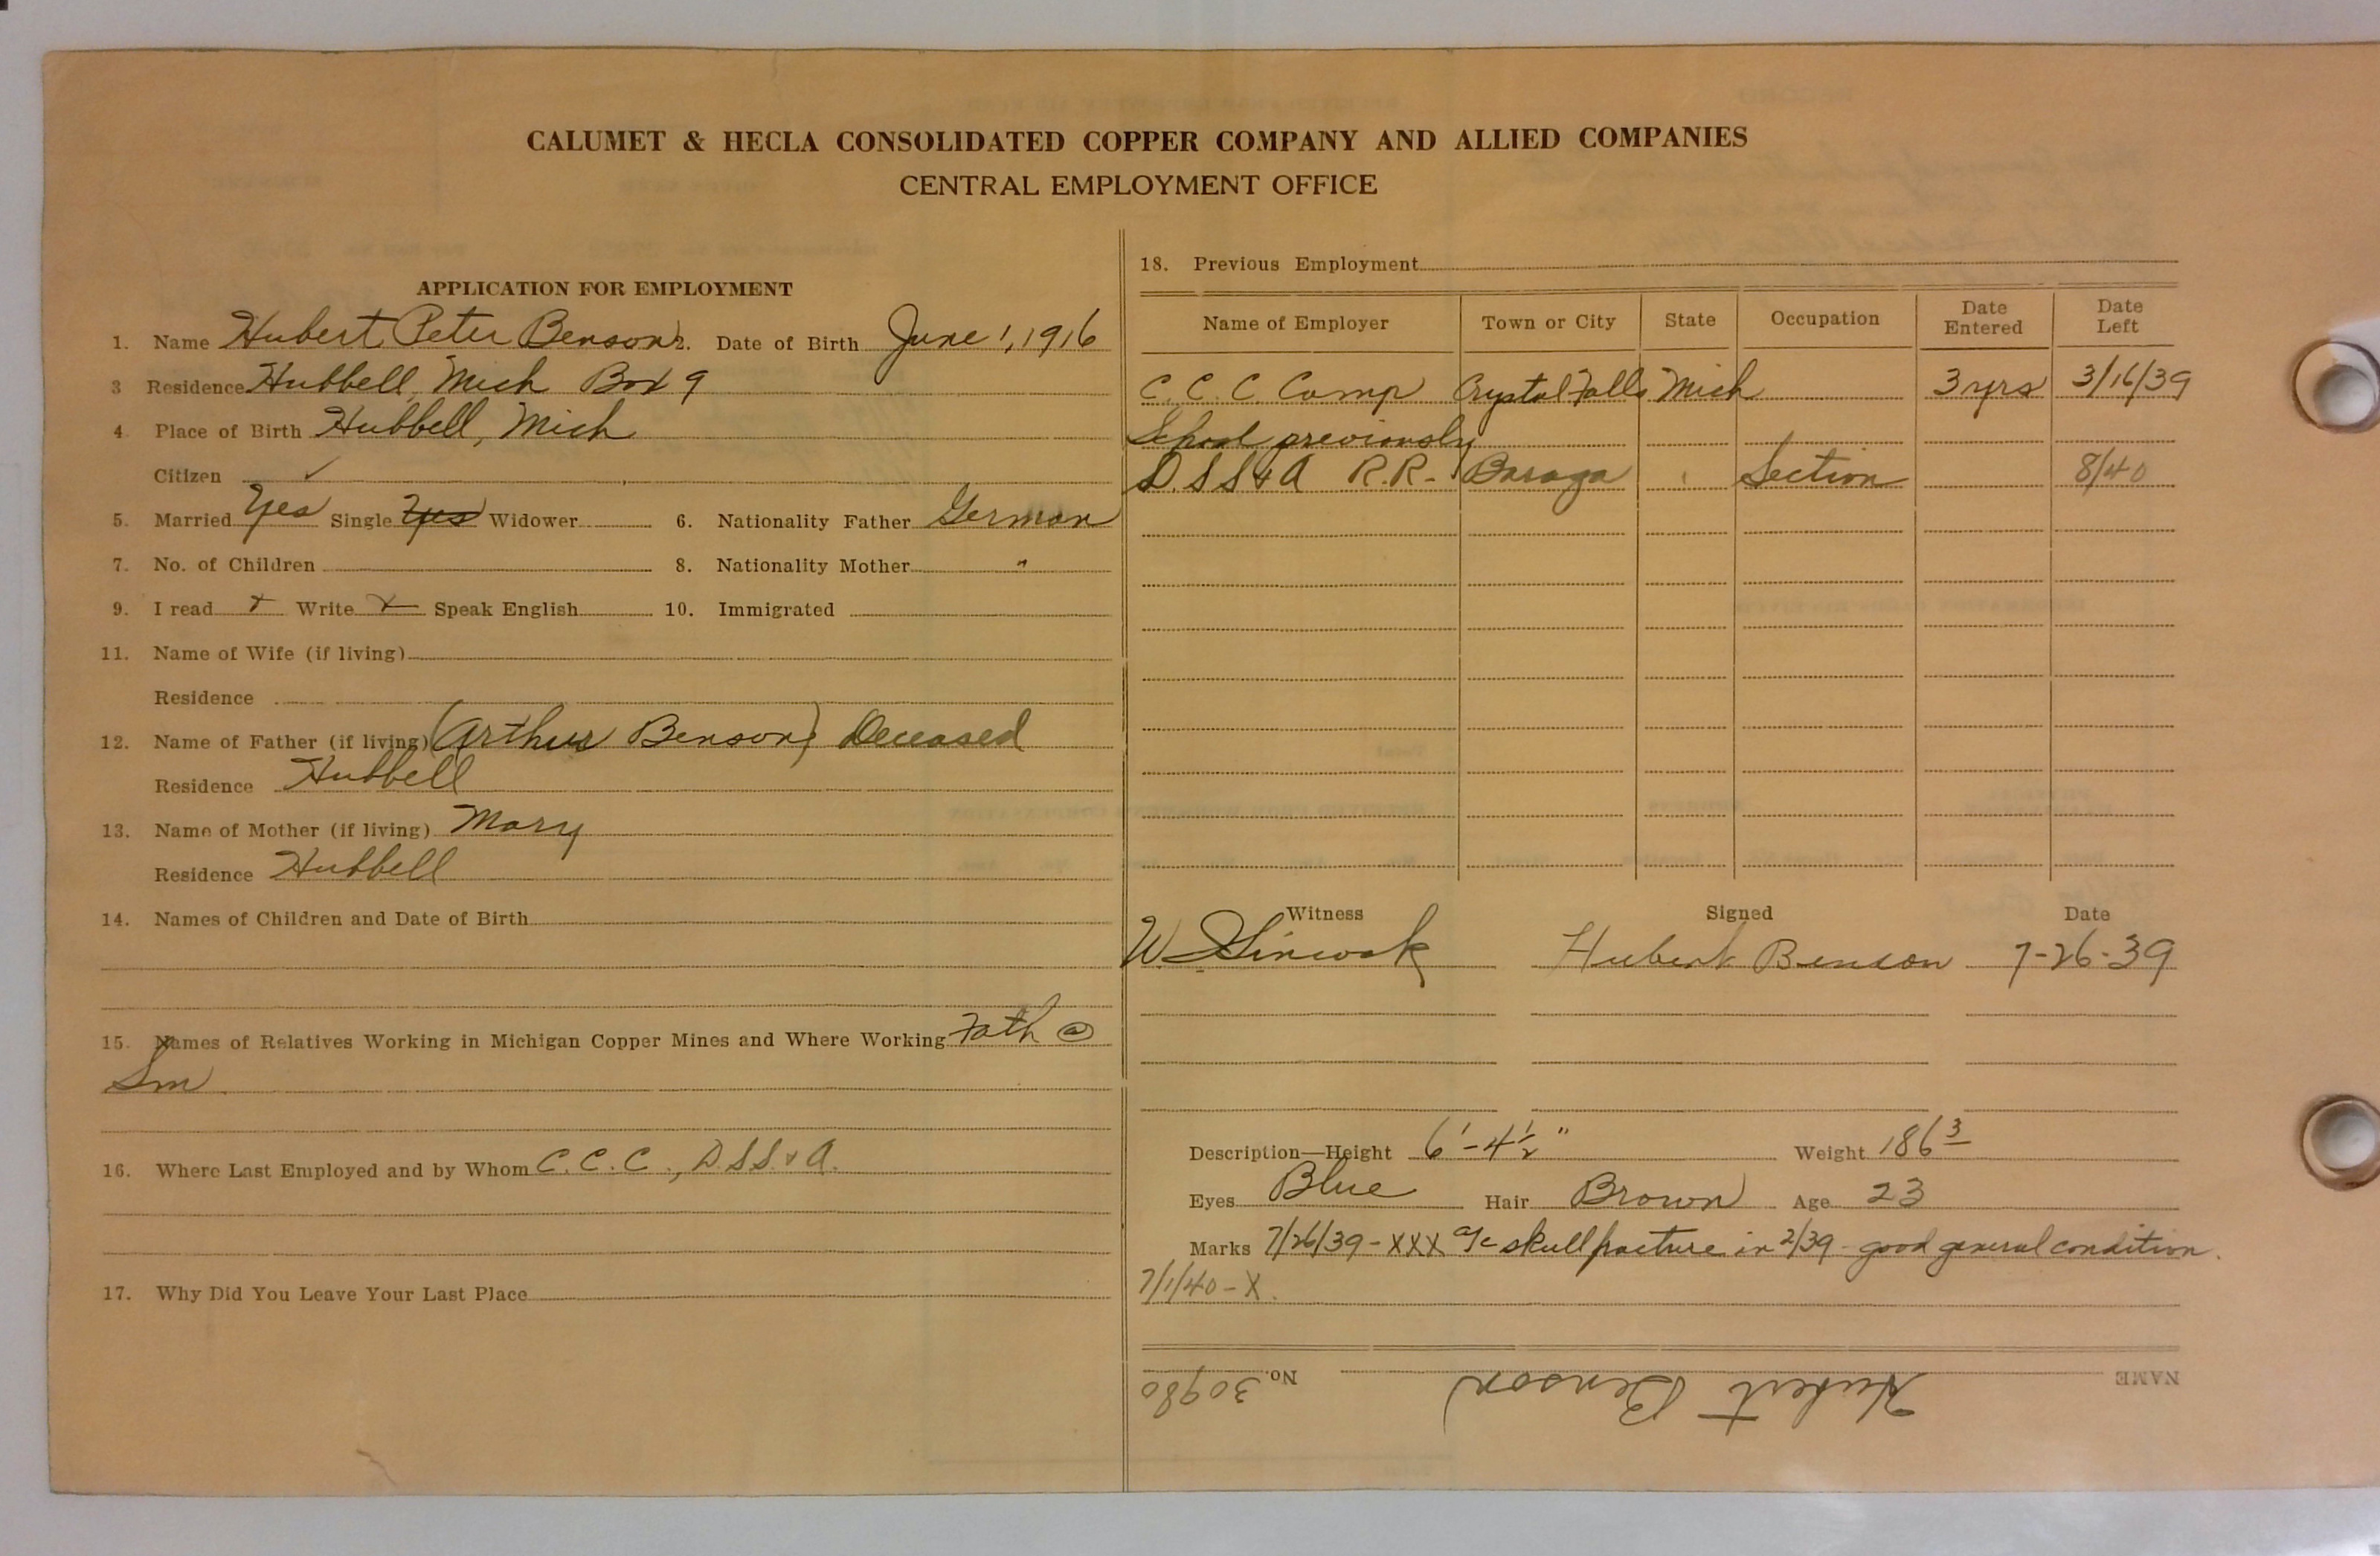 CALUMET & HECLA CONSOLIDATED COPPER COMPANY AND ALLIED COMPANIES
CENTRAL EMPLOYMENT OFFICE
APPLICATION FOR EMPLOYMENT
1. Name Hubert Peter Benson 2. Date of Birth June 1, 1916
3 Residence Hubbell, Mich Box 9
4. Place of Birth Hubbell, Mich
Citizen ✓
5. Married Yes Single Yes Widower 6. Nationality Father German
7. No. of Children 8. Nationality Mother "
9. I read x Write x Speak English 10. Immigrated
11. Name of Wife (if living)
Residence
12. Name of Father (if living) (Arthur Benson) Deceased
Residence Hubbell
13. Name of Mother (if living) Mary
Residence Hubbell
14. Names of Children and Date of Birth
15. Names of Relatives Working in Michigan Copper Mines and Where Working Fath @
Sm
16. Where Last Employed and by Whom C.C.C., D.S.S. & A.
17. Why Did You Leave Your Last Place
18. Previous Employment
Name of Employer Town or City State Occupation Date Entered Date Left
C.C.C. Camp Crystal Falls Mich 3 yrs 3/16/39
School previously
D.S.S & A R.R. Baraga " Section 8/40
Witness Signed Date
W. Hubert Benson 7-26-39
Description—Height 6'-4½" Weight 186 3
Eyes Blue Hair Brown Age 23
Marks 7/26/39 - XXX a/c skull fracture in 2/39 - good general condition.
7/1/40 - X.
NAME Hubert Benson No. 30980